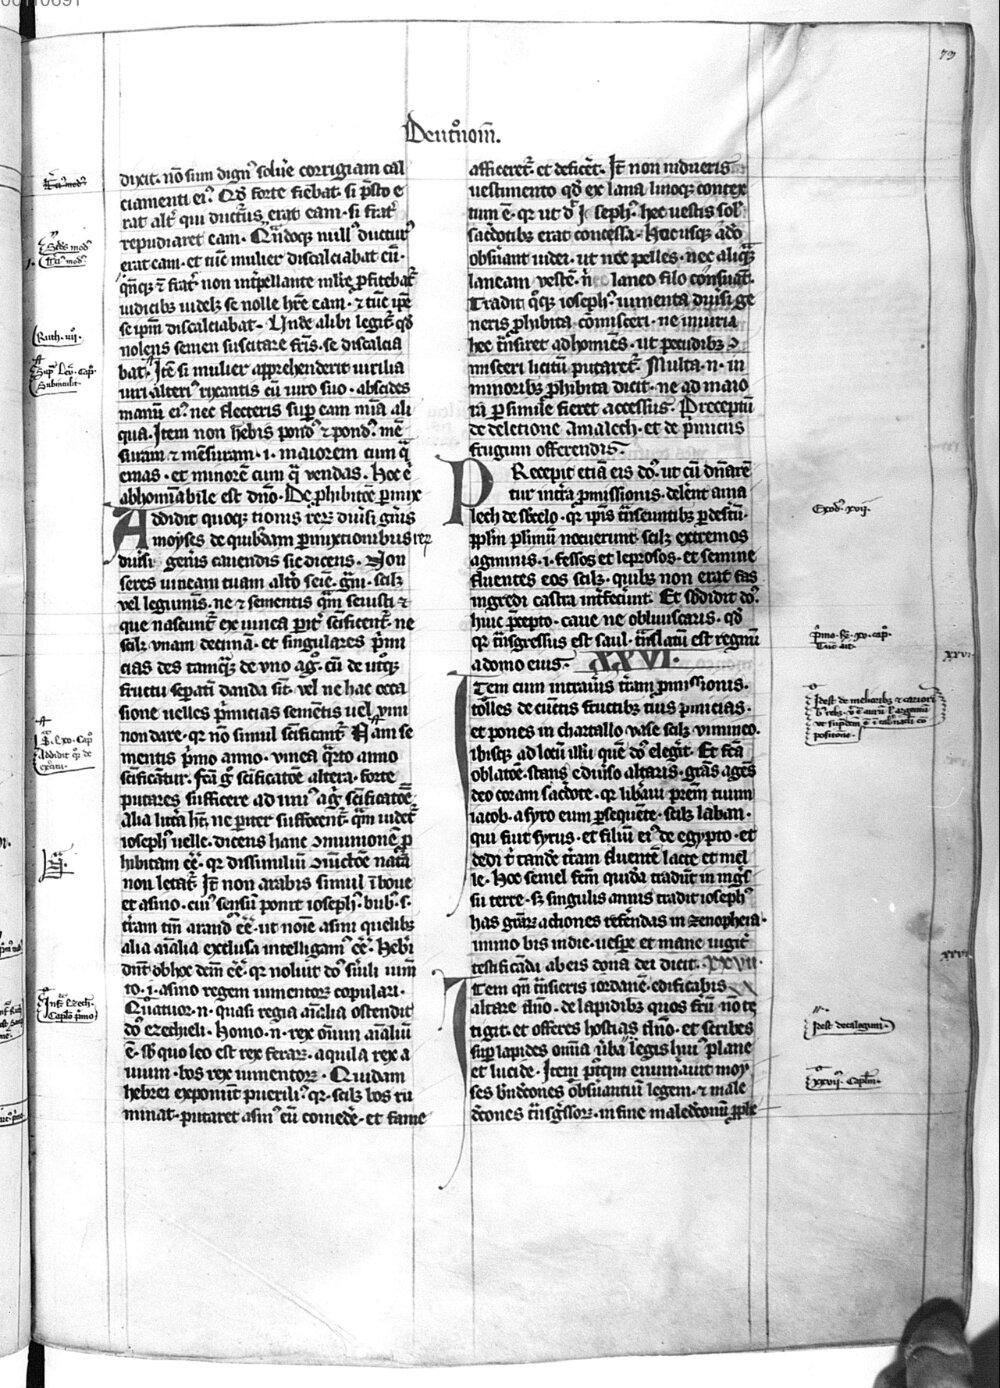 79
Deut'nom̄.
dixit. nō sum dign' solu'e corrigiam cal
ciamenti ei'. Qd' forte fiebat. si p'sto e
rat alt' qui ductur' erat eam. si frat'
repudiaret eam. Qn̄doq; null' ductur'
erat eam. et tūc mulier discalciabat eū.
se ip̄m discalciabat. Unde alibi legit' qd'
nolens semen suscitare fr̄is. se discalcia
bat. Itē si mulier app̄rehenderit uirilia
uiri alteri' rixantis cū uiro suo. abscides
manū ei'. nec flecteris sup̄ eam mīa ali
qua. Item non hēbis pond' ⁊ pond'. mē
suram ⁊ mēsuram .i. maiorem cum q̄
emas. et minorē cum q̄ vendas. Hoc ē
abhominabile est dn̄o. De ꝓhibitōe p̄mix
Addidit quoq; tionis rerꝝ diūsi gn̄is
moyses de quibdam p̄mixtionibus rerꝝ
diūsi gen̄is cauendis sic dicens. Non
seres uineam tuam alt'o sēie. gͣni. scilꝫ
vel legumīs. ne ⁊ sementis qͣm seuisti ⁊
que nascunt' ex uinea pit' sc̄ificent'. ne
scilꝫ vnam decimā. et singulares p̄mi
cias des tamqͣꝫ de vno ag°. cū de ut°qꝫ
fructu sep̄ati danda sīt. vel ne hac occa
sione uelles p̄micias semētis uel vini
non dare. qr nō simul sc̄ificant'. Nam se
mentis p̄mo anno. vinea qͣrto anno
sc̄ificātur. sc̄a g° sc̄ificatōe altera. forte
putares sufficere ad uni' ag' sc̄ificatōē
ioseph' uelle. dicens hanc ɔmunionē ꝓ
hibitam cē. qr dissimiliū ɔiūctōe nat̄a
non letat'. It' non arabis simul ī boue
et asino. cui' sensū ponit ioseph'. bub' s.
t̄ram tm̄ arand' cē. ut noīe asini quelibꝫ
alia aīalia exclusa intelligam' cē. Heb̄i
dn̄t ob hoc dc̄m cē. qr noluit do' sīli iumͤ
to .i. asino regem iumentoꝝ copulari.
Quatuor .n. quasi regia aīalia ostendit
do' ezechieli. homo .n. rex om̄ium aīaliū
ē. sb quo leo est rex feraꝝ. aquila rex a
uium. bos rex iumentoꝝ. Quidam
hebrei exponunt puerili'. qr scilꝫ bos ru
minat. putaret asin' eū comedēͤ. et fame
afficeret'. et deficet. It' non induēris
uestimento qd' ex lana linoqꝫ contex
tum ē. qr ut d' Ioseph'. hec uestis sol'
sac̄dotibꝫ erat concessa. Hoc usqꝫ adō
obs̄uant iudei. ut nec pelles. nec aliqͣꝫ
laneam vestē. n' laneo filo consuāt.
Tradit qͦqꝫ ioseph'. iumenta diūsi ge
neris ꝓhibita cōmisceri. ne iniuria
hec t̄nsiret ad homīes. ut pecudibꝫ ɔ
misceri licitū putaret'. Multa .n. in
minoribꝫ ꝓhibita dicit. ne ad maio
ra p̄ simile fieret accessus. Preceptū
de deletione Amalech. et de p̄miciis
frugum offerendis.
Precepit etiā eis do'. ut cū dn̄arē
tur int̄ra ꝓmissionis. delērt ama
lech de s̄bcelo. qr ip̄is t̄nseuntibꝫ p̄ des̄tū.
ꝓp̄lm p̄limū nocuerunt. scilꝫ extremos
agminis .i. fessos et leprosos. et semine
fluentes eos scilꝫ. quibꝫ non erat fas
ingredi castra int̄fecūnt. Et s̄bdidit do'.
huic p̄cepto. caue ne obliuiscaris. qd'
qr t̄nsgressus est saul. t̄nslatū est regnū
a domo eius. XXVI.
Item cum intrau̅is t̄ram ꝓmissionis.
tolles de cūctis fructibꝫ tuis p̄micias.
et pones in chartallo vase scilꝫ vimineo.
ibisqꝫ ad locū illū quē do' elegit. Et fc̄ā
oblatōe. stans ediūso altaris. gr̄as agēs
deo coram sac̄dote. qr lib̄auit p̄rem tuum
iacob. a syro eum p̄sequēte. scilꝫ laban.
qui fuit syrus. et filiū ei' de egypto. et
dedit t' tandē t̄ram fluentē lacte et mel
le. Hoc semel fc̄m quidā tradūt in ing̅s
su terre. sꝫ singulis annis tradit ioseph'
has gr̄aꝝ actiones refēndas in zenopheia.
immo bis in die. uesp̄e et mane iugit'
testificāda ab eis dona dei dicit. XXVII.
Item qn̄ t̄nsieris iordanē. edificabis
altare dn̄o. de lapidibꝫ quos frū nō te
tigit. et offeres hostias dn̄o. et scribes
sup̄ lapides om̄ia u̅ba legis hui' plane
et lucide. Item p'tqm̄ enum̄auit moy
ses bn̄dc̄ones obs̄uantiū legem. ⁊ male
dc̄ones t̄nsg̅ssoꝝ. in fine maledc̄onū ꝓp̄ls
Ruth. iiij.
Exod'. xvij.
xxvi.
xxvij.
Idest decalogum.
xxvij. Cap̄lm.